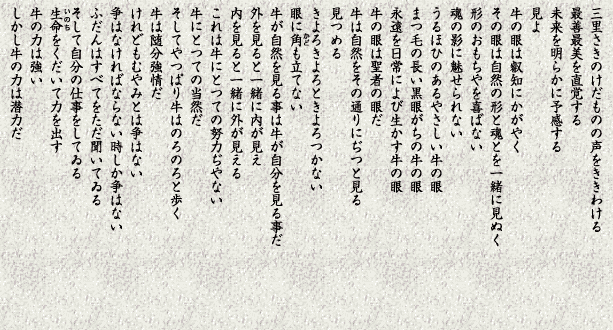 三里さきのけだものの声をききわける
最善最美を直覚する
未来を明らかに予感する
見よ
牛の眼は叡知にかがやく
その眼は自然の形と魂とを一緒に見ぬく
形のおもちやを喜ばない
魂の影に魅せられない
うるほひのあるやさしい牛の眼
まつ毛の長い黒眼がちの牛の眼
永遠を日常によび生かす牛の眼
牛の眼は聖者の眼だ
牛は自然をその通りにぢつと見る
見つめる
きよろきよろときよろつかない
眼に角も立てない
牛が自然を見る事は牛が自分を見る事だ
外を見ると一緒に内が見え
内を見ると一緒に外が見える
これは牛にとつての努力ぢやない
牛にとつての当然だ
そしてやつぱり牛はのろのろと歩く
牛は随分強情だ
けれどもむやみとは争はない
争はなければならない時しか争はない
ふだんはすべてをただ聞いてゐる
そして自分の仕事をしてゐる
生命をくだいて力を出す
牛の力は強い
しかし牛の力は潜力だ